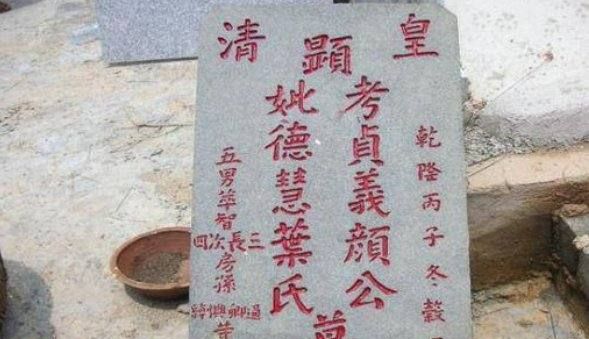 皇顯清
乾隆丙子冬穀
考貞義顏公
妣德慧葉氏
墓
五男萃智
三長次四
房孫